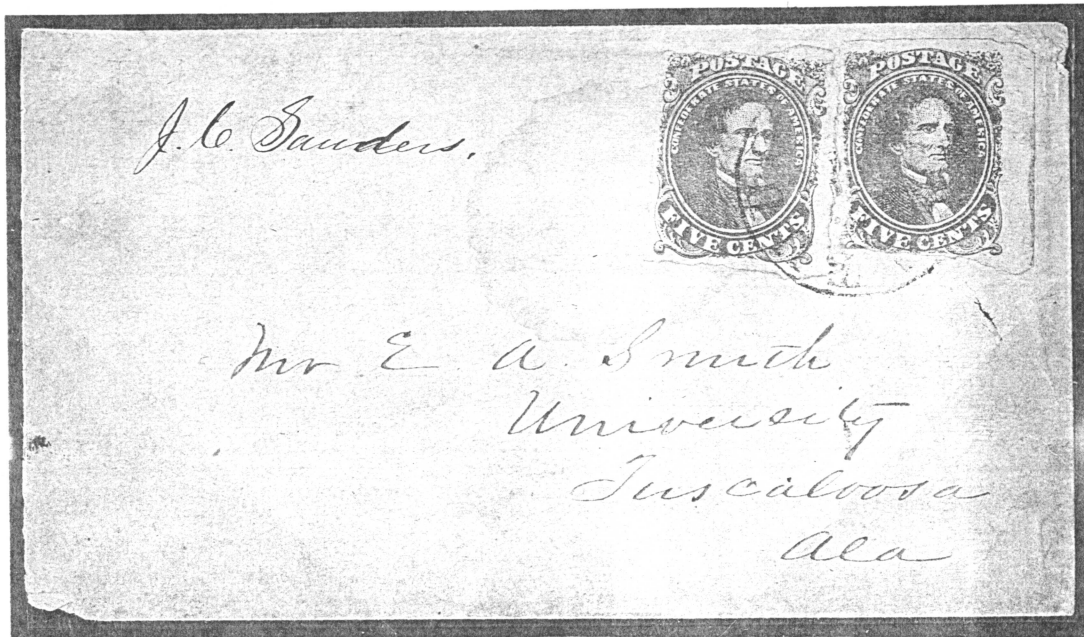 J. C. Sanders.
POSTAGE
CONFEDERATE STATES OF AMERICA
FIVE CENTS
POSTAGE
CONFEDERATE STATES OF AMERICA
FIVE CENTS
Mr E A. Smith
University
Tuscaloosa
Ala